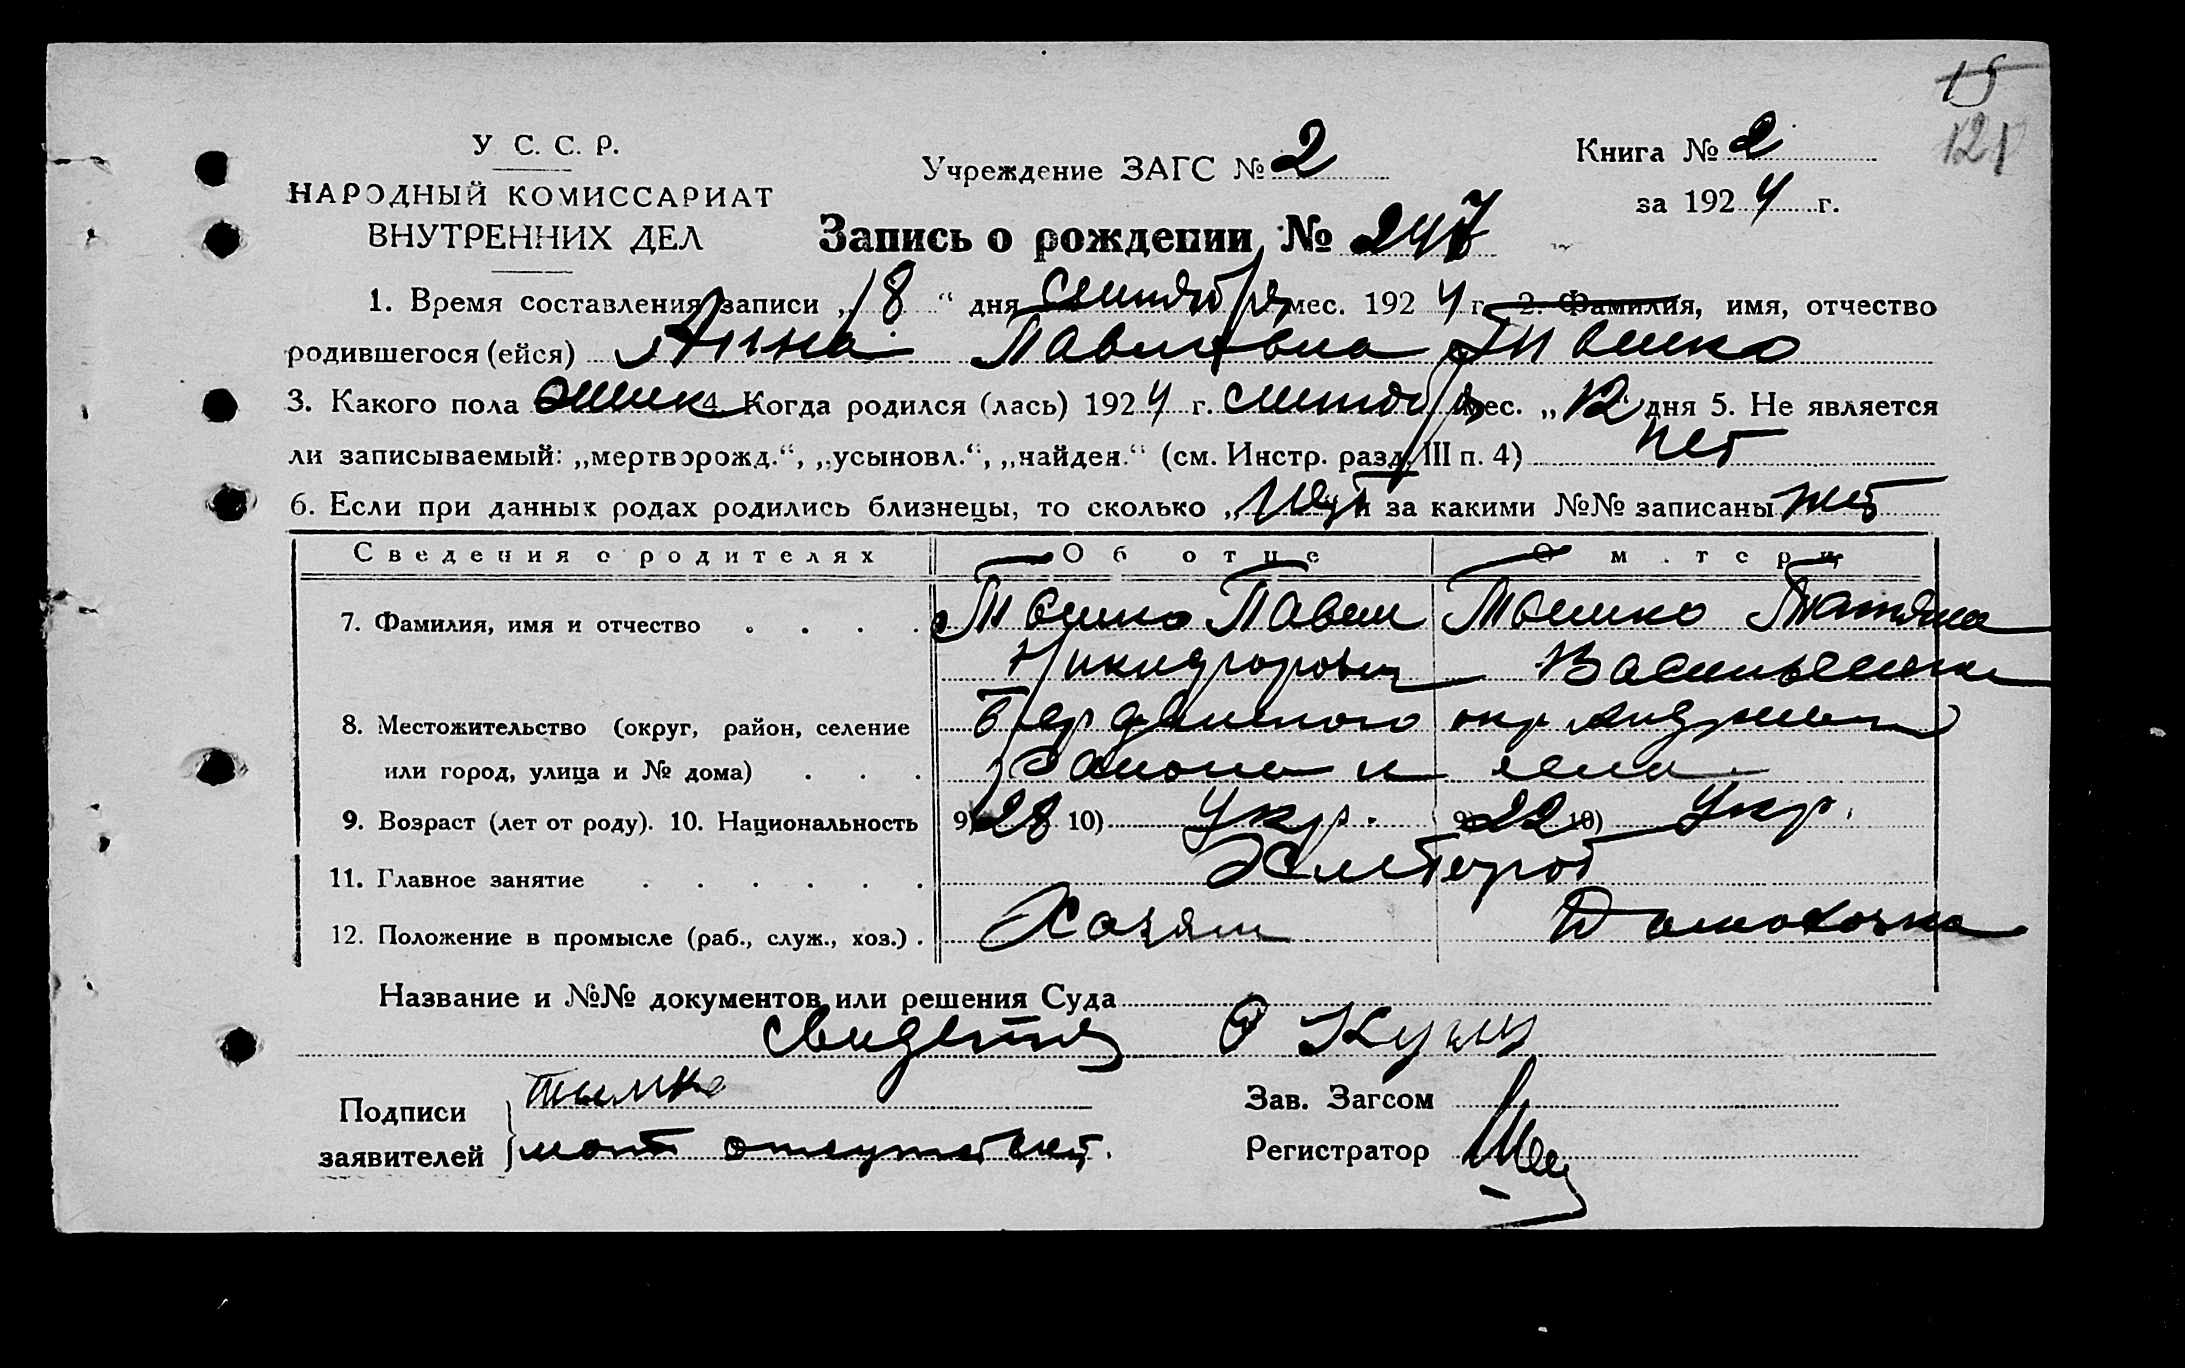 15
121
У С. С. Р.
НАРОДНЫЙ КОМИССАРИАТ
ВНУТРЕННИХ ДЕЛ
Учреждение ЗАГС № 2
Книга № 2
за 1924 г.
Запись о рождении № 247
1. Время составления записи „18“ дня сентября мес. 1924 г. 2. Фамилия, имя, отчество
родившегося (ейся) Анна Павловна
3. Какого пола женск 4. Когда родился (лась) 1924 г. сентября мес. „12 дня 5. Не является
ли записываемый: „мертворожд.“, „усыновл.“, „найден.“ (см. Инстр. разд. III п. 4) нет
6. Если при данных родах родились близнецы, то сколько „нет и за какими №№ записаны нет
Сведения о родителях Об отце О матери
7. Фамилия, имя и отчество Павел Татьяна
Никифорович Васильевна
8. Местожительство (округ, район, селение Бердянского окр.
или город, улица и № дома) района и села
9. Возраст (лет от роду). 10. Национальность 9) 28 10) Укр. 9) 22 10) Укр.
11. Главное занятие Хлебороб
12. Положение в промысле (раб., служ., хоз.) Хозяин Домохозяйка
Название и №№ документов или решения Суда
Подписи
заявителей
Зав. Загсом
Регистратор